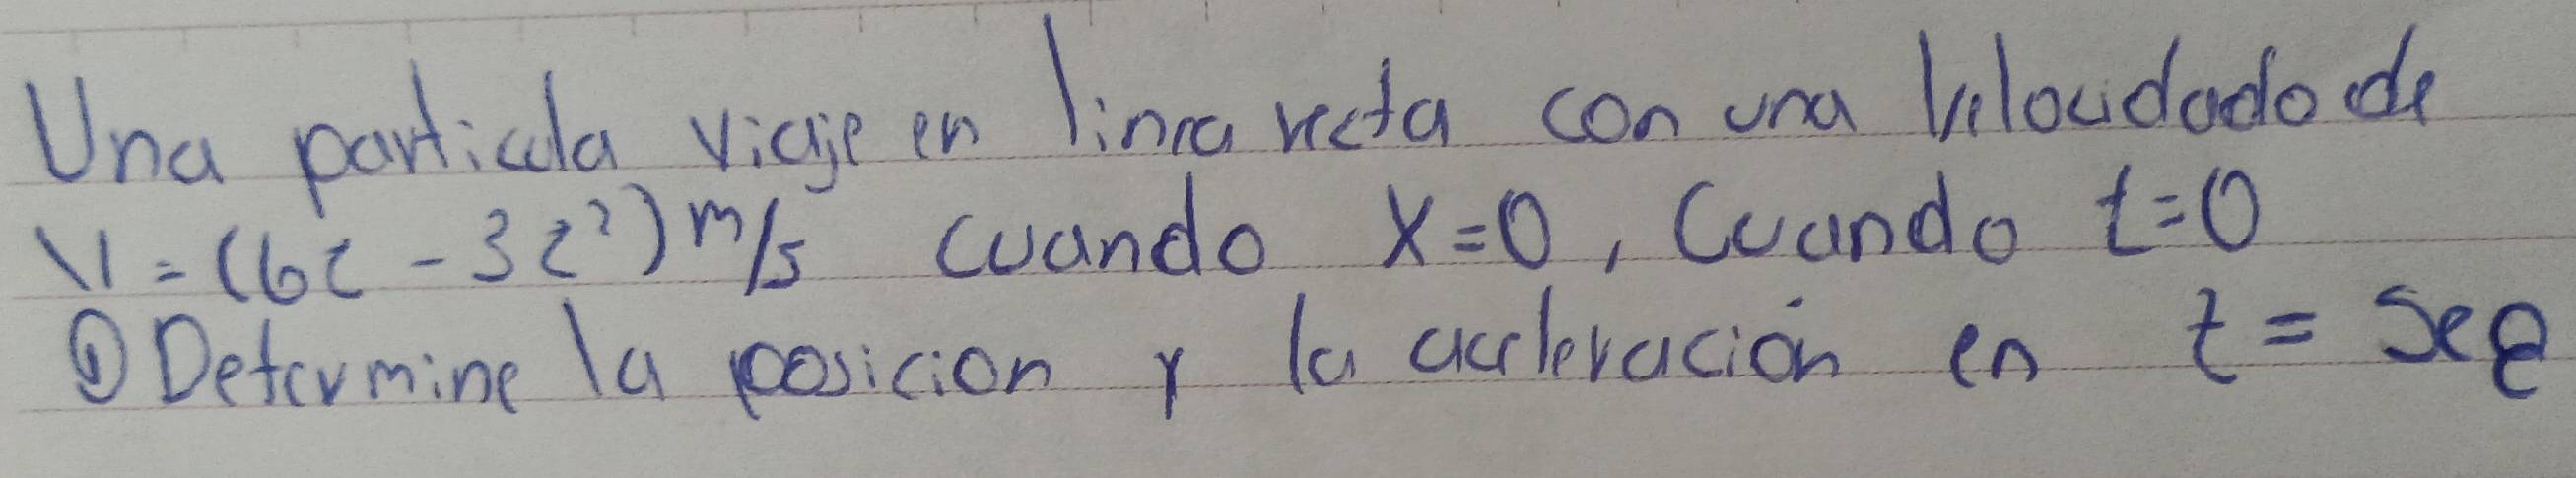 Una particula viaje en linea recta con una Velocidado de
V=(6t-3t²)m/s cuando X=0, Cuando t=0
① Determine la posicion y la aceleración en t= seg